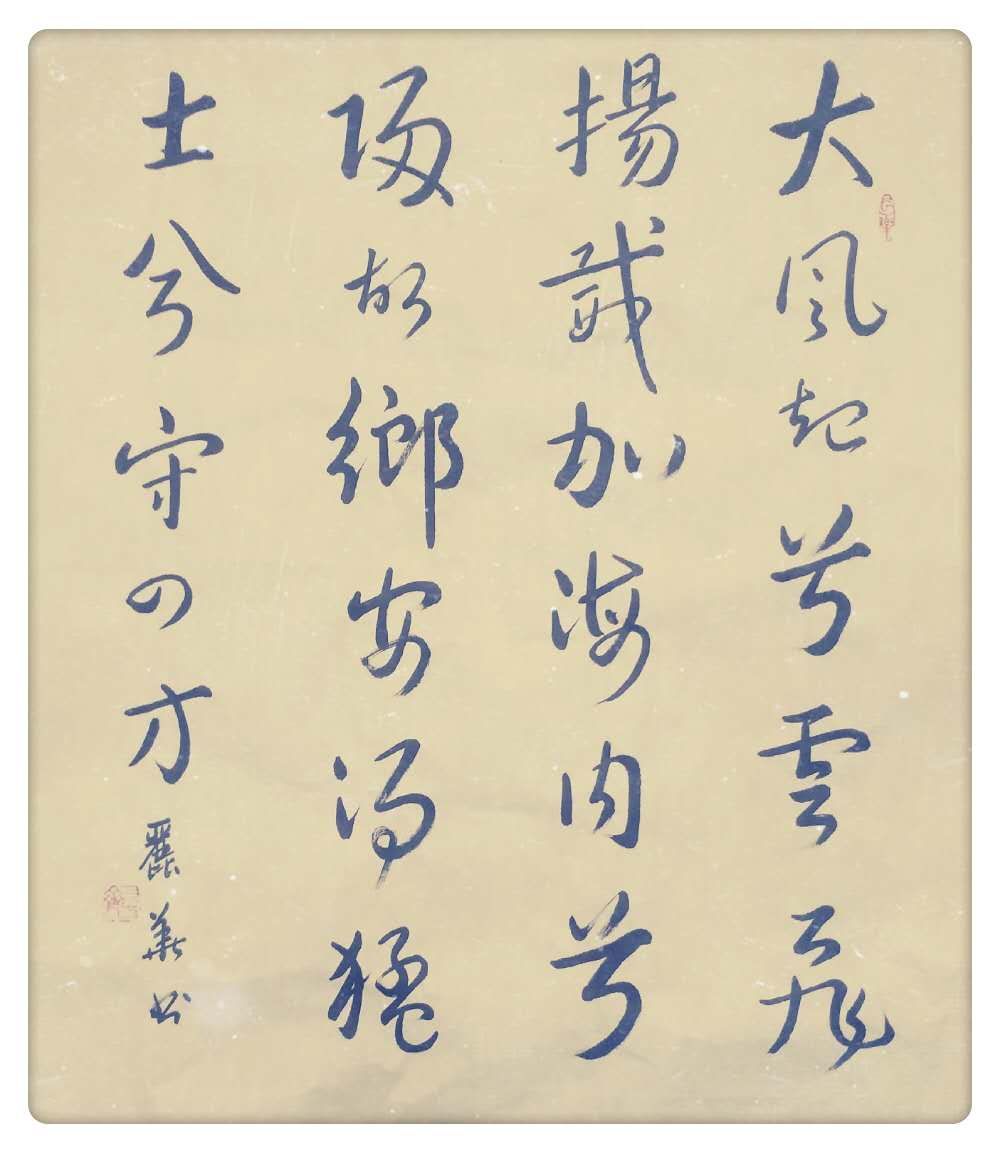 大風起兮雲飛
揚威加海内兮
歸故鄉安得猛
士兮守四方
麗華書